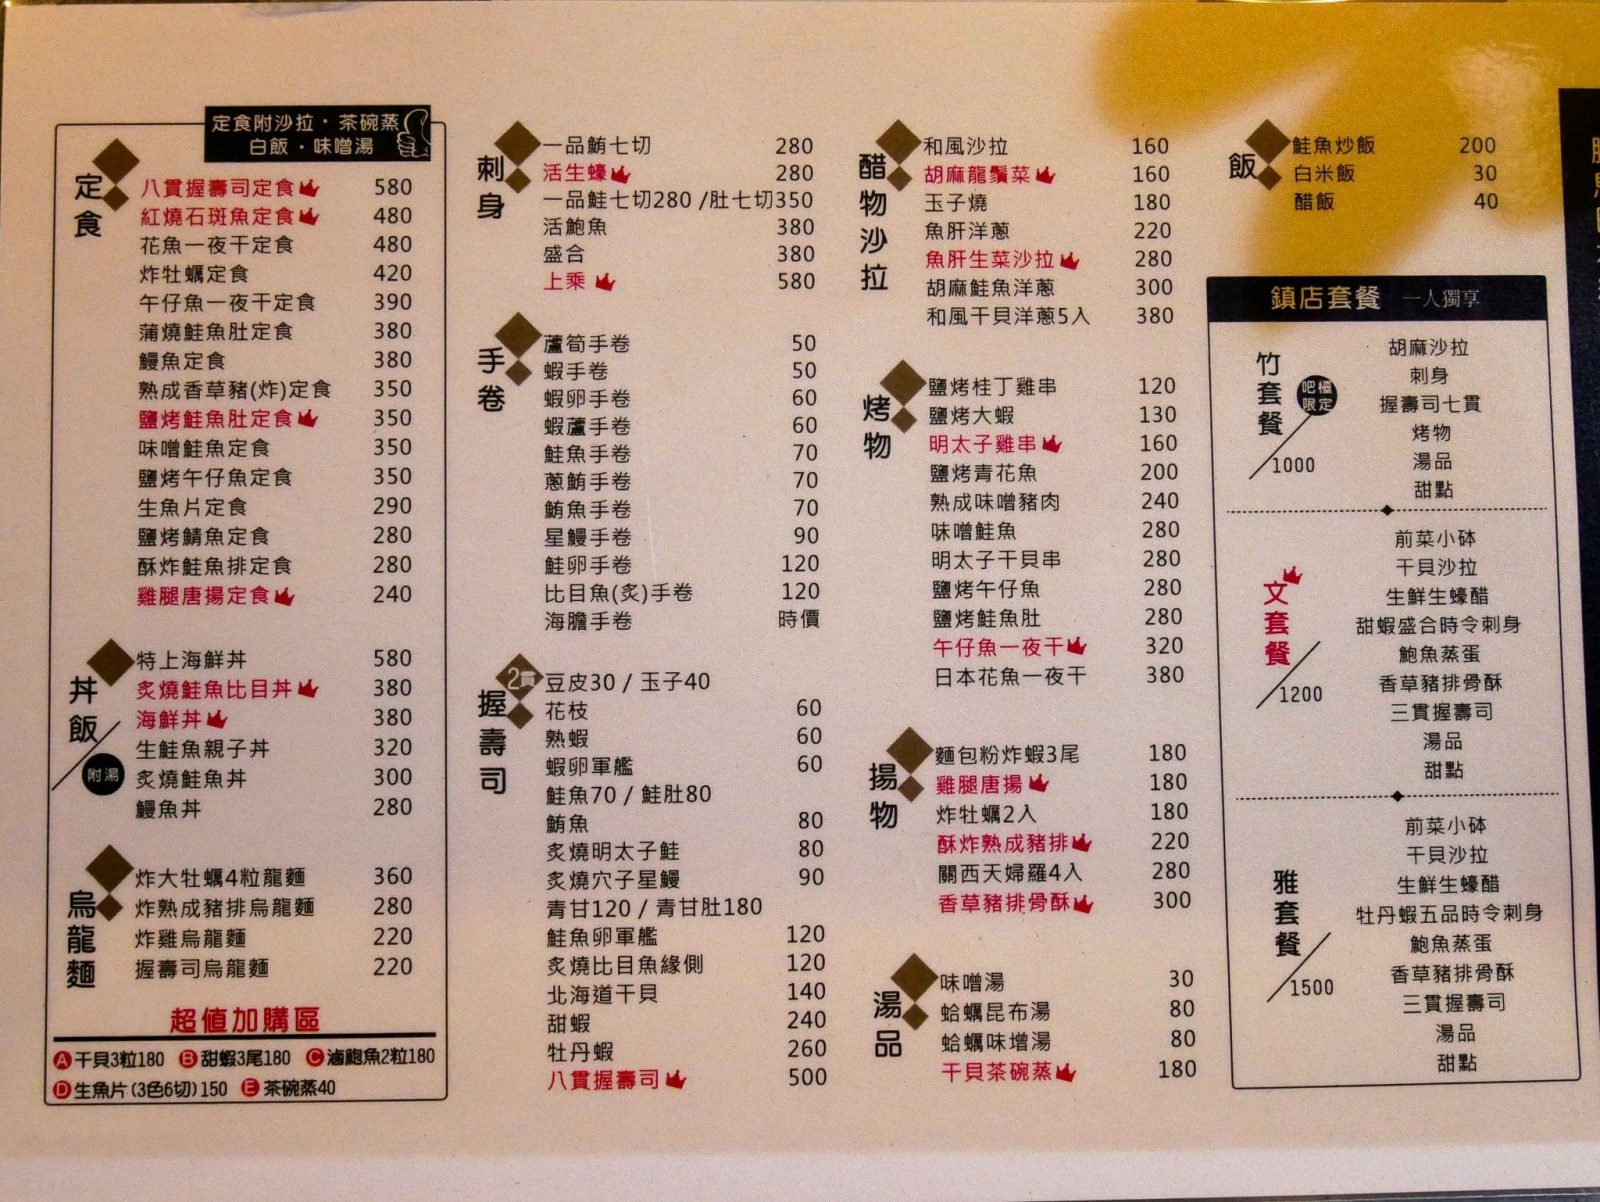 定食附沙拉・茶碗蒸
白飯・味噌湯
定食
八貫握壽司定食 580
紅燒石斑魚定食 480
花魚一夜干定食 480
炸牡蠣定食 420
午仔魚一夜干定食 390
蒲燒鮭魚肚定食 380
鰻魚定食 380
熟成香草豬(炸)定食 350
鹽烤鮭魚肚定食 350
味噌鮭魚定食 350
鹽烤午仔魚定食 350
生魚片定食 290
鹽烤鯖魚定食 280
酥炸鮭魚排定食 280
雞腿唐揚定食 240
丼飯
附湯
特上海鮮丼 580
炙燒鮭魚比目丼 380
海鮮丼 380
生鮭魚親子丼 320
炙燒鮭魚丼 300
鰻魚丼 280
烏龍麵
炸大牡蠣4粒龍麵 360
炸熟成豬排烏龍麵 280
炸雞烏龍麵 220
握壽司烏龍麵 220
超值加購區
A 干貝3粒180 B 甜蝦3尾180 C 滷鮑魚2粒180
D 生魚片(3色6切)150 E 茶碗蒸40
刺身
一品鮪七切 280
活生蠔 280
一品鮭七切280 /肚七切350
活鮑魚 380
盛合 380
上乘 580
手卷
蘆筍手卷 50
蝦手卷 50
蝦卵手卷 60
蝦蘆手卷 60
鮭魚手卷 70
蔥鮪手卷 70
鮪魚手卷 70
星鰻手卷 90
鮭卵手卷 120
比目魚(炙)手卷 120
海膽手卷 時價
2貫
握壽司
豆皮30 / 玉子40
花枝 60
熟蝦 60
蝦卵軍艦 60
鮭魚70 / 鮭肚80
鮪魚 80
炙燒明太子鮭 80
炙燒穴子星鰻 90
青甘120 / 青甘肚180
鮭魚卵軍艦 120
炙燒比目魚緣側 120
北海道干貝 140
甜蝦 240
牡丹蝦 260
八貫握壽司 500
醋物沙拉
和風沙拉 160
胡麻龍鬚菜 160
玉子燒 180
魚肝洋蔥 220
魚肝生菜沙拉 280
胡麻鮭魚洋蔥 300
和風干貝洋蔥5入 380
烤物
鹽烤桂丁雞串 120
鹽烤大蝦 130
明太子雞串 160
鹽烤青花魚 200
熟成味噌豬肉 240
味噌鮭魚 280
明太子干貝串 280
鹽烤午仔魚 280
鹽烤鮭魚肚 280
午仔魚一夜干 320
日本花魚一夜干 380
揚物
麵包粉炸蝦3尾 180
雞腿唐揚 180
炸牡蠣2入 180
酥炸熟成豬排 220
關西天婦羅4入 280
香草豬排骨酥 300
湯品
味噌湯 30
蛤蠣昆布湯 80
蛤蠣味增湯 80
干貝茶碗蒸 180
飯
鮭魚炒飯 200
白米飯 30
醋飯 40
鎮店套餐 一人獨享
竹套餐
吧檯限定
1000
胡麻沙拉
刺身
握壽司七貫
烤物
湯品
甜點
文套餐
1200
前菜小砵
干貝沙拉
生鮮生蠔醋
甜蝦盛合時令刺身
鮑魚蒸蛋
香草豬排骨酥
三貫握壽司
湯品
甜點
雅套餐
1500
前菜小砵
干貝沙拉
生鮮生蠔醋
牡丹蝦五品時令刺身
鮑魚蒸蛋
香草豬排骨酥
三貫握壽司
湯品
甜點